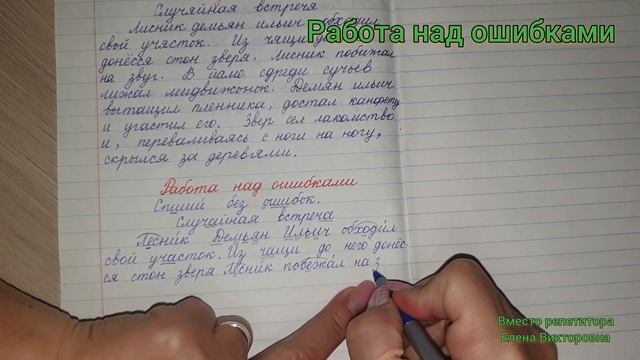 Работа над ошибками
Случяйная встречя
Лисник демьян ильич обходил
свой учясток. Из чящи
донёсся стон зверя. Лисник побижал
на звук. В яме сдреди сучьев
лижал мидвижонок. Демян ильич
вытащил пленника, достал канфету
и угастил его. Звер сел лакомство
и, переваливаясь с ноги на ногу,
скрылся за деревями.
Работа над ошибками
Спиши без ошибок.
Случайная встреча
Лесник Демьян Ильич обходил
свой участок. Из чащи до него донёс-
ся стон зверя. Лесник побежал на з
Вместо репетитора
Елена Викторовна